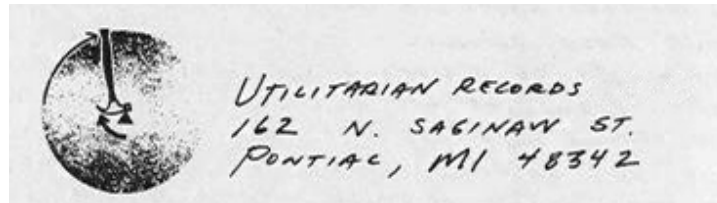 UTILITARIAN RECORDS
162 N. SAGINAW ST.
PONTIAC, MI 48342